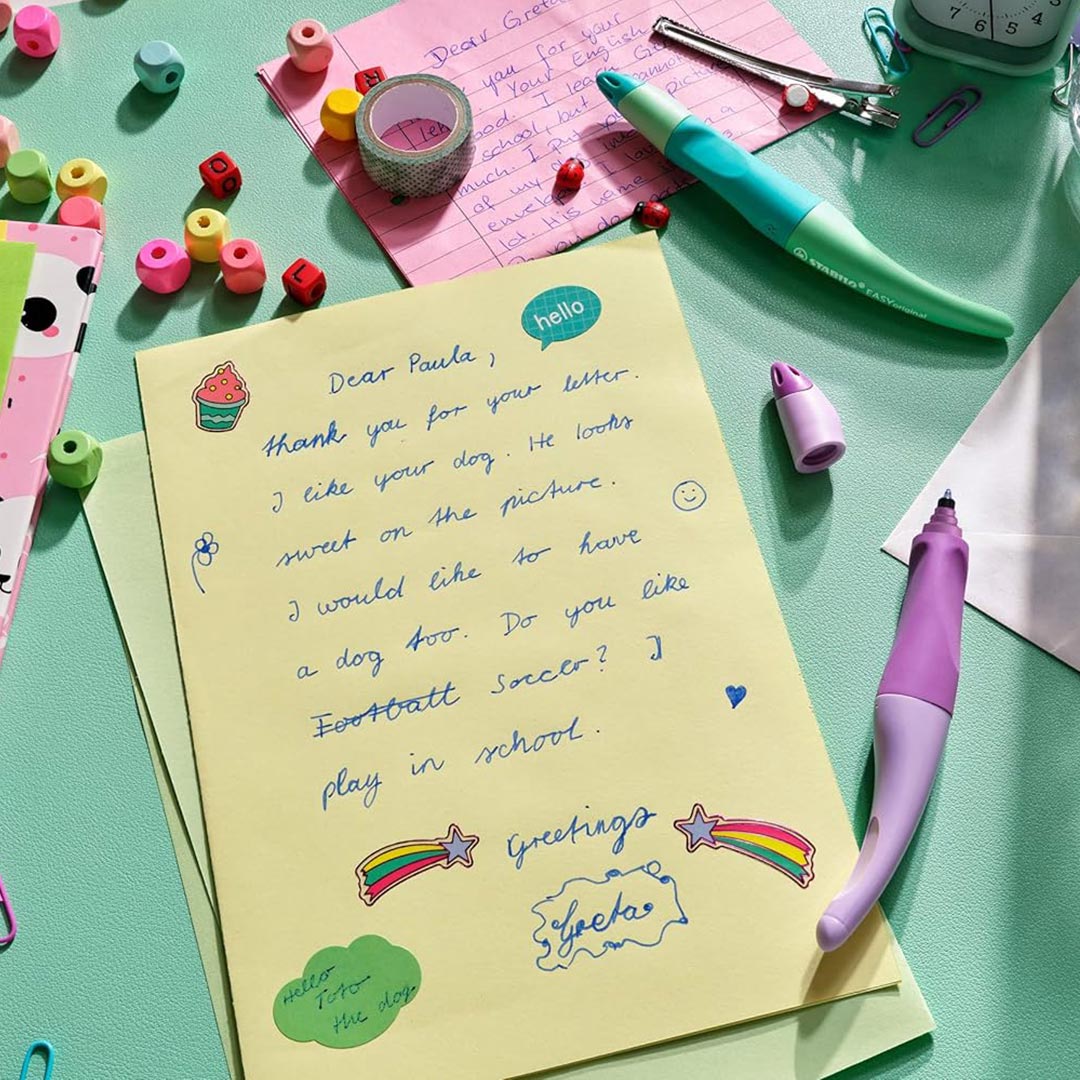 Dear Greta
you for your
Your English
ood. I learn Ge
school, but cannot
much. I put picture
of my dog into
envelope I lov
lot. His name
Do you
7 6 5 4 3
O
L
R
STABILO EASYoriginal
hello
Dear Paula,
thank you for your letter.
I like your dog. He looks
sweet on the picture.
I would like to have
a dog too. Do you like
Football Soccer? I
play in school.
Greetings
Greta
Hello
Toto
the dog